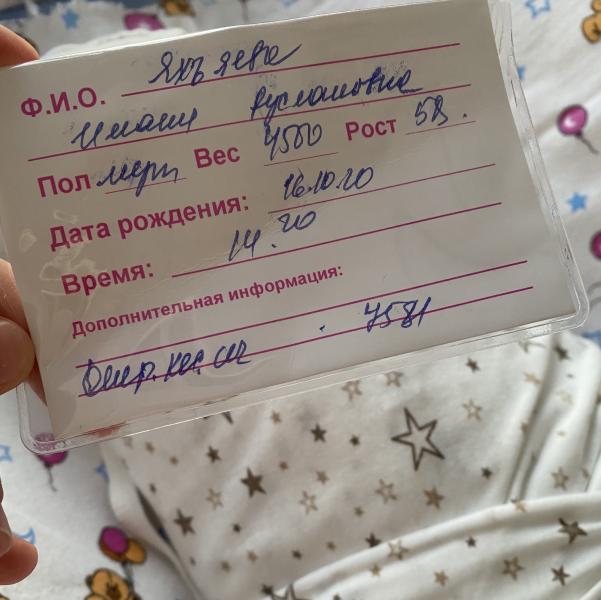 Ф.И.О. Яхъяева
Имани Руслановна
Пол Вес 4500 Рост 58.
Дата рождения: 16.10.20
Время: 14.20
Дополнительная информация:
7581